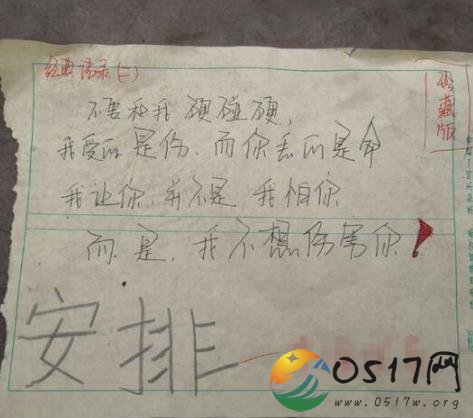 经典语录(二)
珍藏版
不要和我硬碰硬,
我受的是伤,而你丢的是命
我让你,并不是我怕你
而是,我不想伤害你!
安排
0517网
www.0517w.org